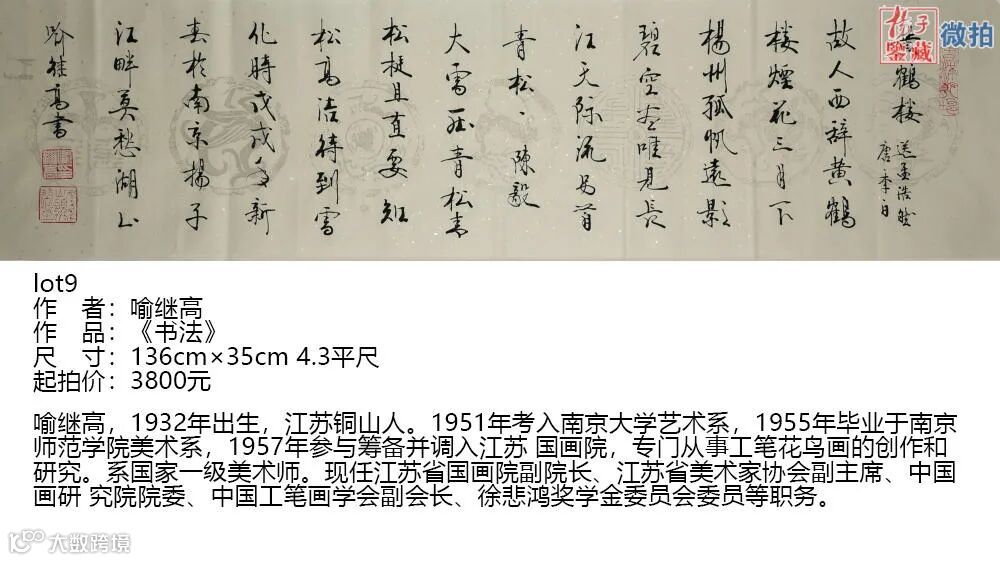 鶴樓 送孟浩然
唐李白
故人西辞黄鶴
樓煙花三月下
楊州孤帆遠影
碧空尽唯見長
江天際流 另首
青松、陳毅
大雪压青松青
松挺且直要知
松高洁待到雪
化時戊戌冬新
春於南京揚子
江畔莫愁湖上
喻継高書
子
鉴藏
微拍
lot9
作 者：喻继高
作 品：《书法》
尺 寸：136cm×35cm 4.3平尺
起拍价：3800元
喻继高，1932年出生，江苏铜山人。1951年考入南京大学艺术系，1955年毕业于南京
师范学院美术系，1957年参与筹备并调入江苏 国画院，专门从事工笔花鸟画的创作和
研究。系国家一级美术师。现任江苏省国画院副院长、江苏省美术家协会副主席、中国
画研 究院院委、中国工笔画学会副会长、徐悲鸿奖学金委员会委员等职务。
大数跨境